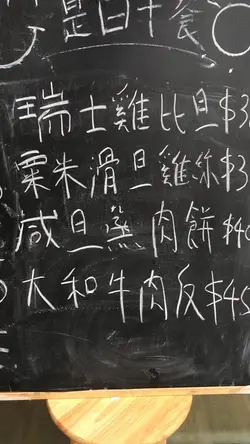 是日午食
瑞士雞比旦$3
粟米滑旦雞絲$3
咸旦蒸肉餅$4
大和牛肉反$45